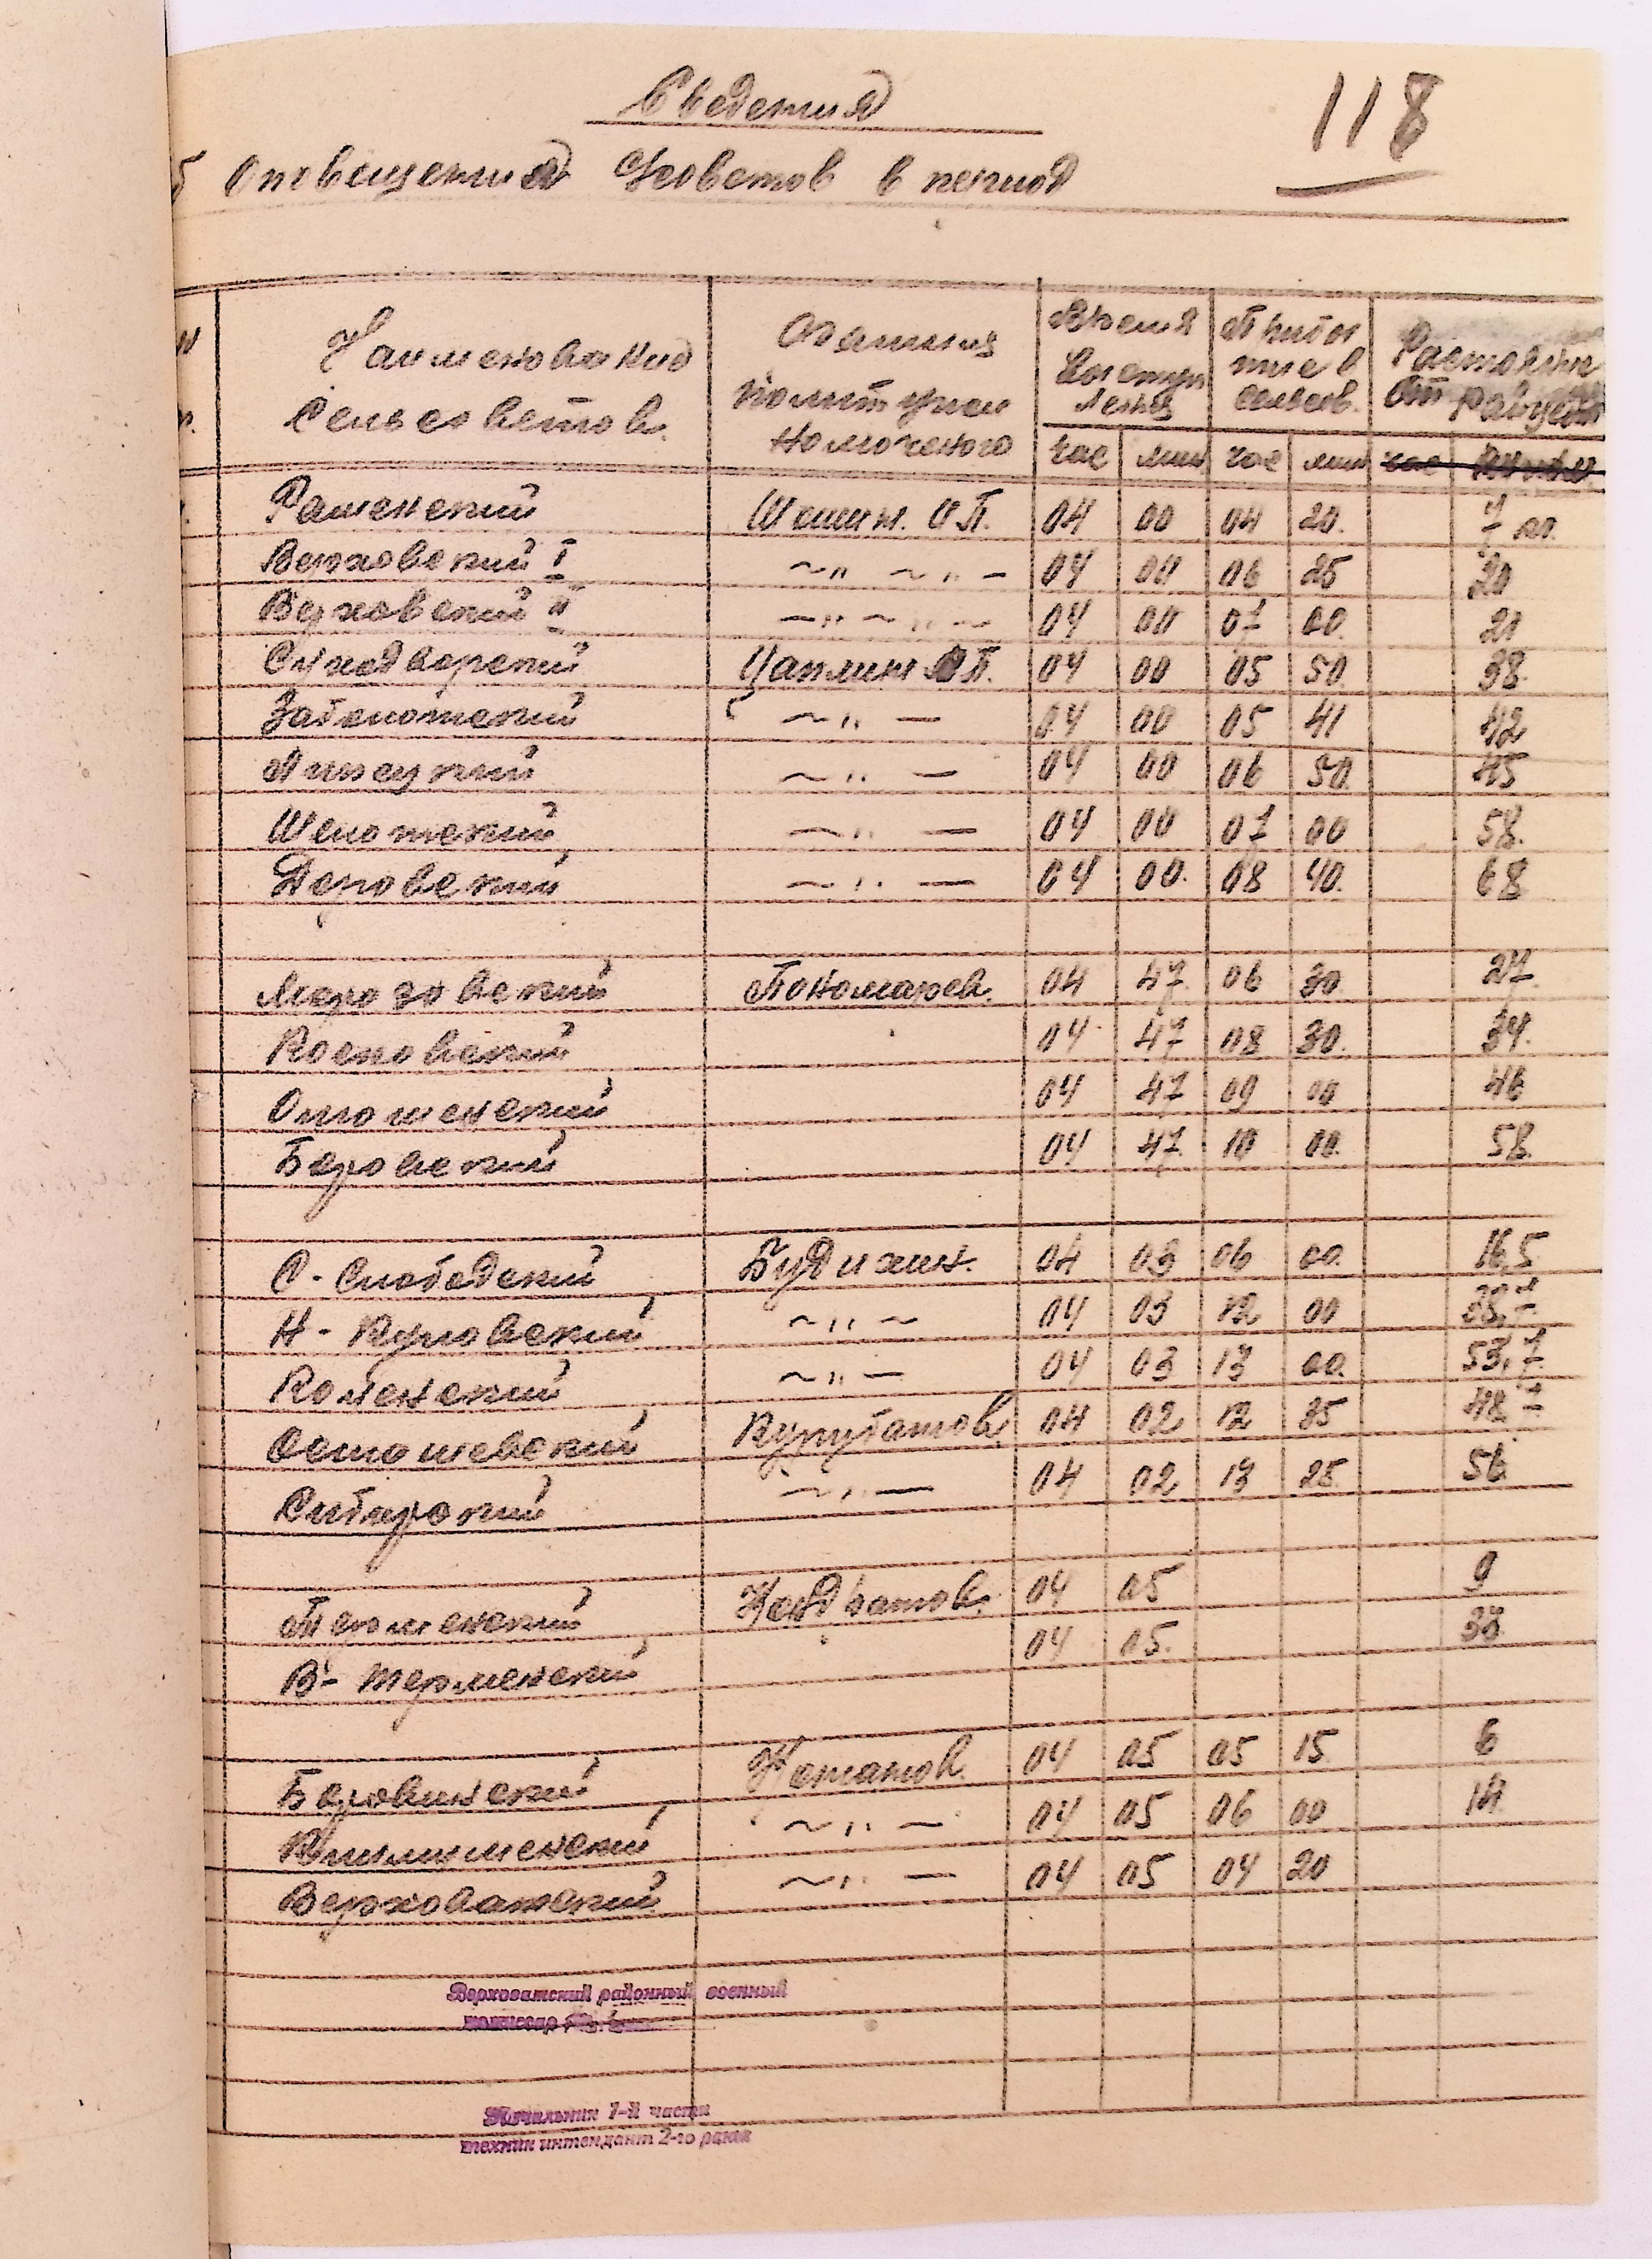 Сведения
118
Оповещения С/советов в период
Наименование
Сельсоветов.
Фамилия
полит упол
номоченого
Время
выступ
ления
Прибы
тие в
сельсов.
Растояние
от райцен
час мин час мин час
Раменский Шешин. И П. 04 00 04 20. 7 км.
Верховский I ~ " ~ " – 04 00 06 25 20
Верховский II – " ~ " ~ 04 00 07 00. 21
Сухдворский Цаплин П. 04 00 05 50. 38.
Заболотский ~ " – 04 00 05 41 42
Липецкий ~ " – 04 00 06 50. 45
Шелотский ~ " – 04 00 07 00 58.
Доровский ~ " – 04 00. 08 40. 68
Морозовский Пономарев. 04 47. 06 30. 27.
Косковский 04 47 08 30. 34.
Олюшенский 04 47 09 00 46
Боровский 04 47. 10 00. 58.
С-Слободский Будихин. 04 03 06 00. 16,5
Н-Кулойский ~ " ~ 04 03 12 00
Коленский ~ " – 04 03 13 00. 53,7
Осташевский 04 02 12 35 48
Сибирский ~ " – 04 02 13 25. 56
Терменский 04 05 9
В-Терменский 04 05. 38.
Боровинский 04 05 05 15. 6
~ " – 04 05 06 00 14.
Верховажский ~ " – 04 05 04 20
Верховажский районный военный
комиссар
Начальник 1-й части
техник интендант 2-го ранга